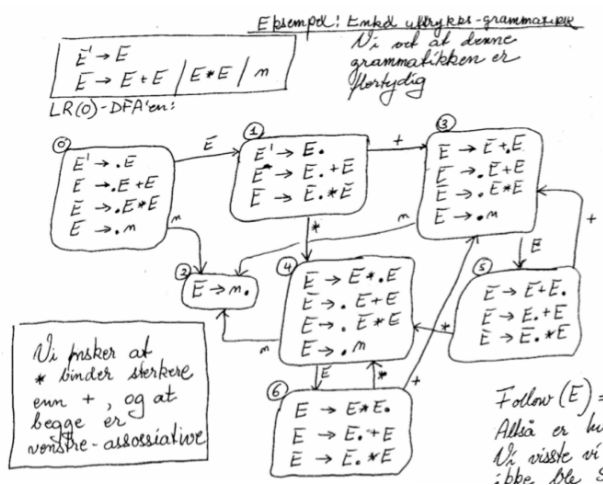 Eksempel: Enkel uttrykks-grammatikk
E' → E
E → E + E / E * E / n
Vi vet at denne
grammatikken er
flertydig
LR(0)-DFA'en:
0
E' → .E
E → .E + E
E → .E * E
E → .n
E
n
1
E' → E.
E → E. + E
E → E. * E
+
*
3
E → E + .E
E → .E + E
E → .E * E
E → .n
n
E
+
2
E → n.
4
E → E * .E
E → .E + E
E → .E * E
E → .n
n
E
*
+
5
E → E + E.
E → E. + E
E → E. * E
*
6
E → E * E.
E → E. + E
E → E. * E
Vi ønsker at
* binder sterkere
enn +, og at
begge er
venstre-assossiative
Follow (E) =
Altså er
Vi visste vi
ikke ble